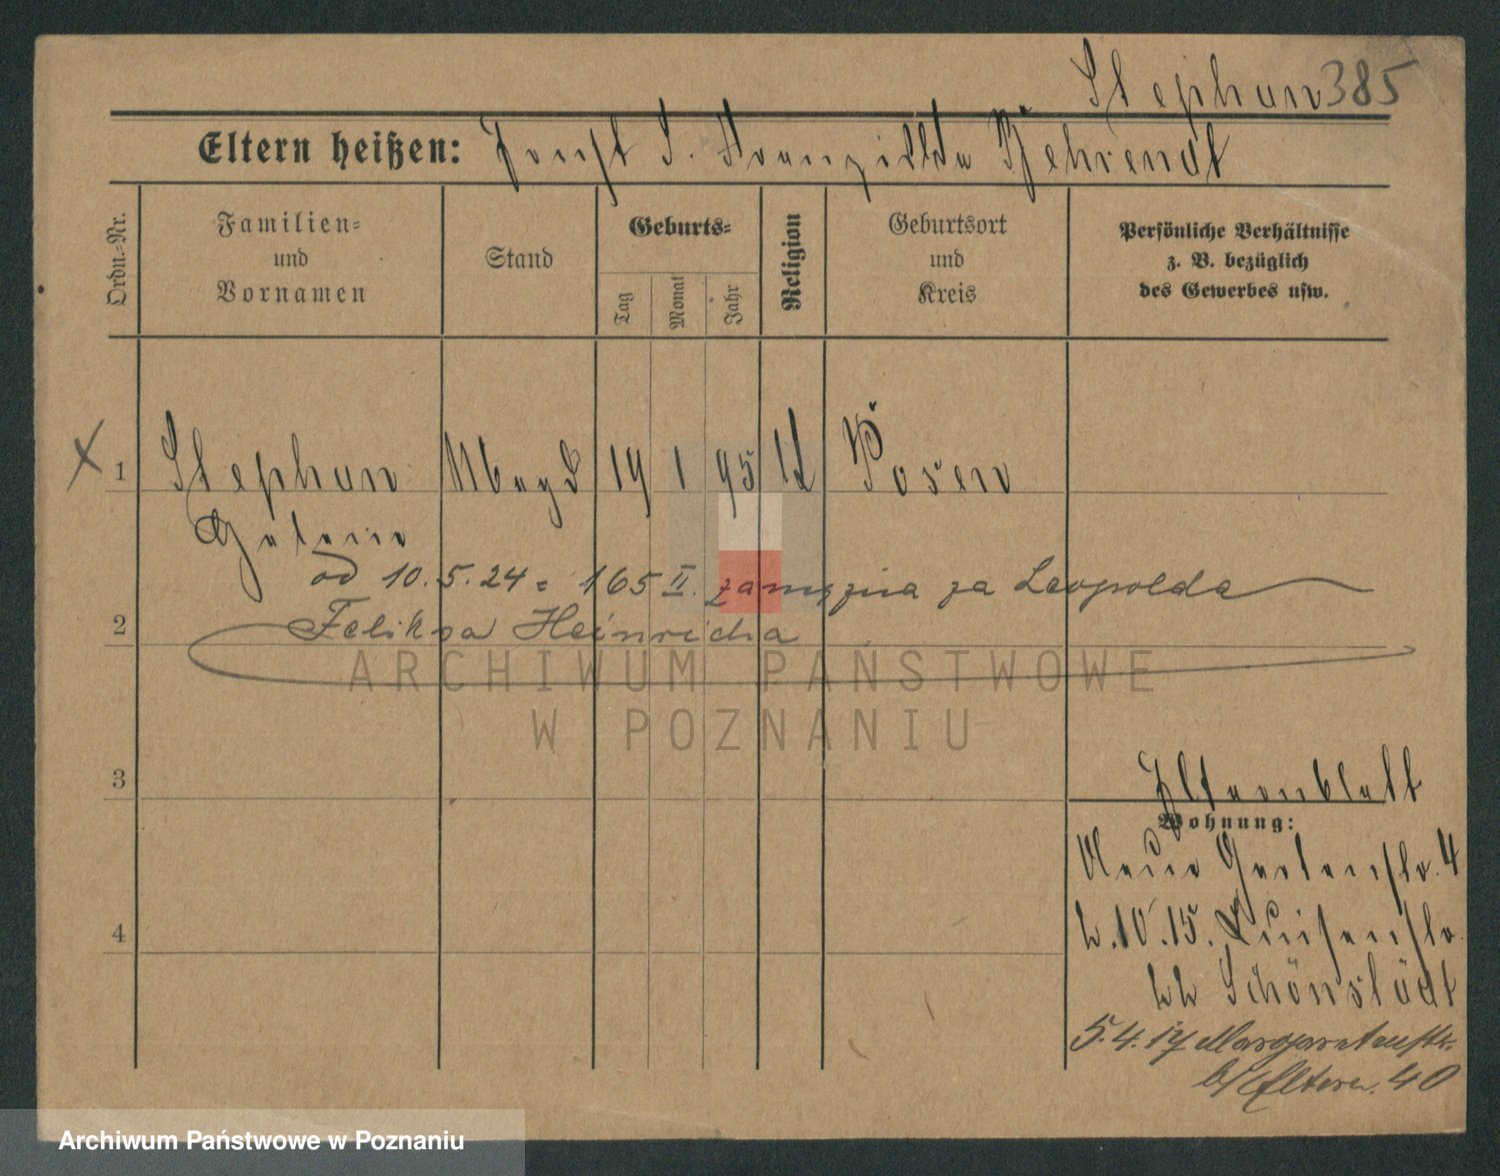 Stephan 385
Eltern heißen: Ernst u. Franziska Behrendt
Ordn.-Nr.
Familien-
und
Vornamen
Stand
Geburts-
Tag
Monat
Jahr
Religion
Geburtsort
und
Kreis
Persönliche Verhältnisse
z. B. bezüglich
des Gewerbes usw.
1 Stephan 19 1 95 Posen
Helene
od 10.5.24 = 165 II. zamężna za Leopolda
2 Feliksa Heinricha
ARCHIWUM PAŃSTWOWE
W POZNANIU
3
Elternblatt
Wohnung:
Neue Gartenstr. 4
4
10.15. Luisenstr.
Schönstädt
5.4.17 Margaretenstr.
b/Eltern. 40
Archiwum Państwowe w Poznaniu